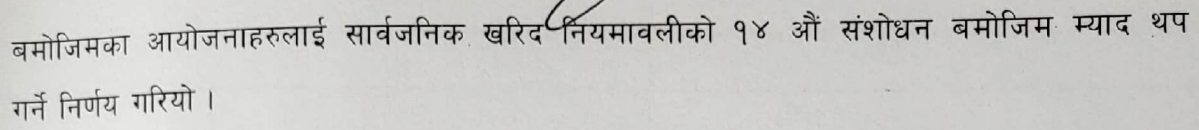 बमोजिमका आयोजनाहरुलाई सार्वजनिक खरिद नियमावलीको १४ औं संशोधन बमोजिम म्याद थप
गर्ने निर्णय गरियो ।